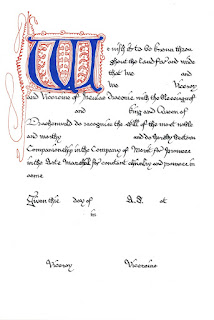 We wish it to be known throu
ghout the land far and wide
that We and
We Viceroy
and Vicereine of Insulae Draconis with the blessing of
and King and Queen of
Drachenwald do recognize the skill of the most noble
and worthy and do thereby
Companionship in the Company of for prowess
in the for constant chivalry and prowess in
same
Given this day of A.S. at
in
Viceroy Vicereine